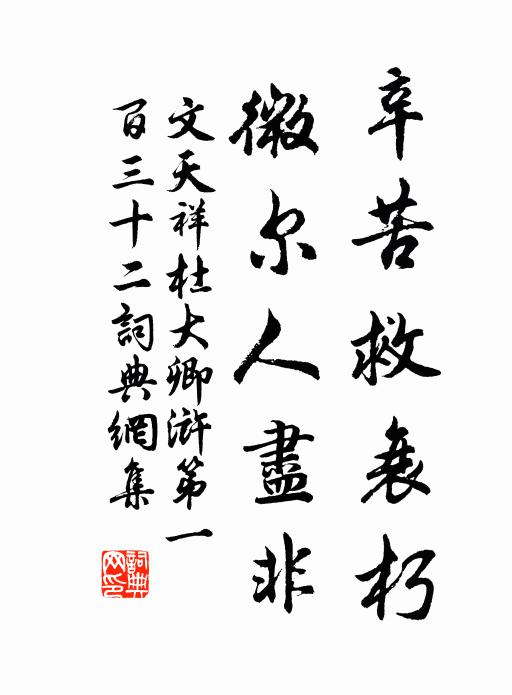 辛苦救衰朽
微尔人盡非
文天祥杜大卿滸第一
百三十二詞典網集
詞典
网印